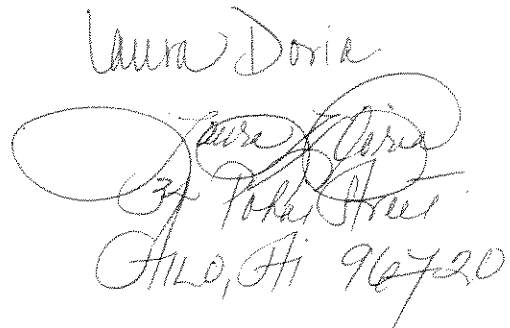 Laura Doria
Laura Doria
Pohai Street
Hilo, Hi 96720